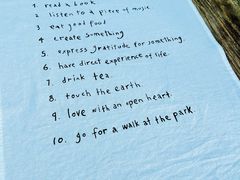 1. read a book
2. listen to a piece of music.
3. eat good food
4. create something
5. express gratitude for something.
6. have direct experience of life.
7. drink tea.
8. touch the earth.
9. love with an open heart.
10. go for a walk at the park.